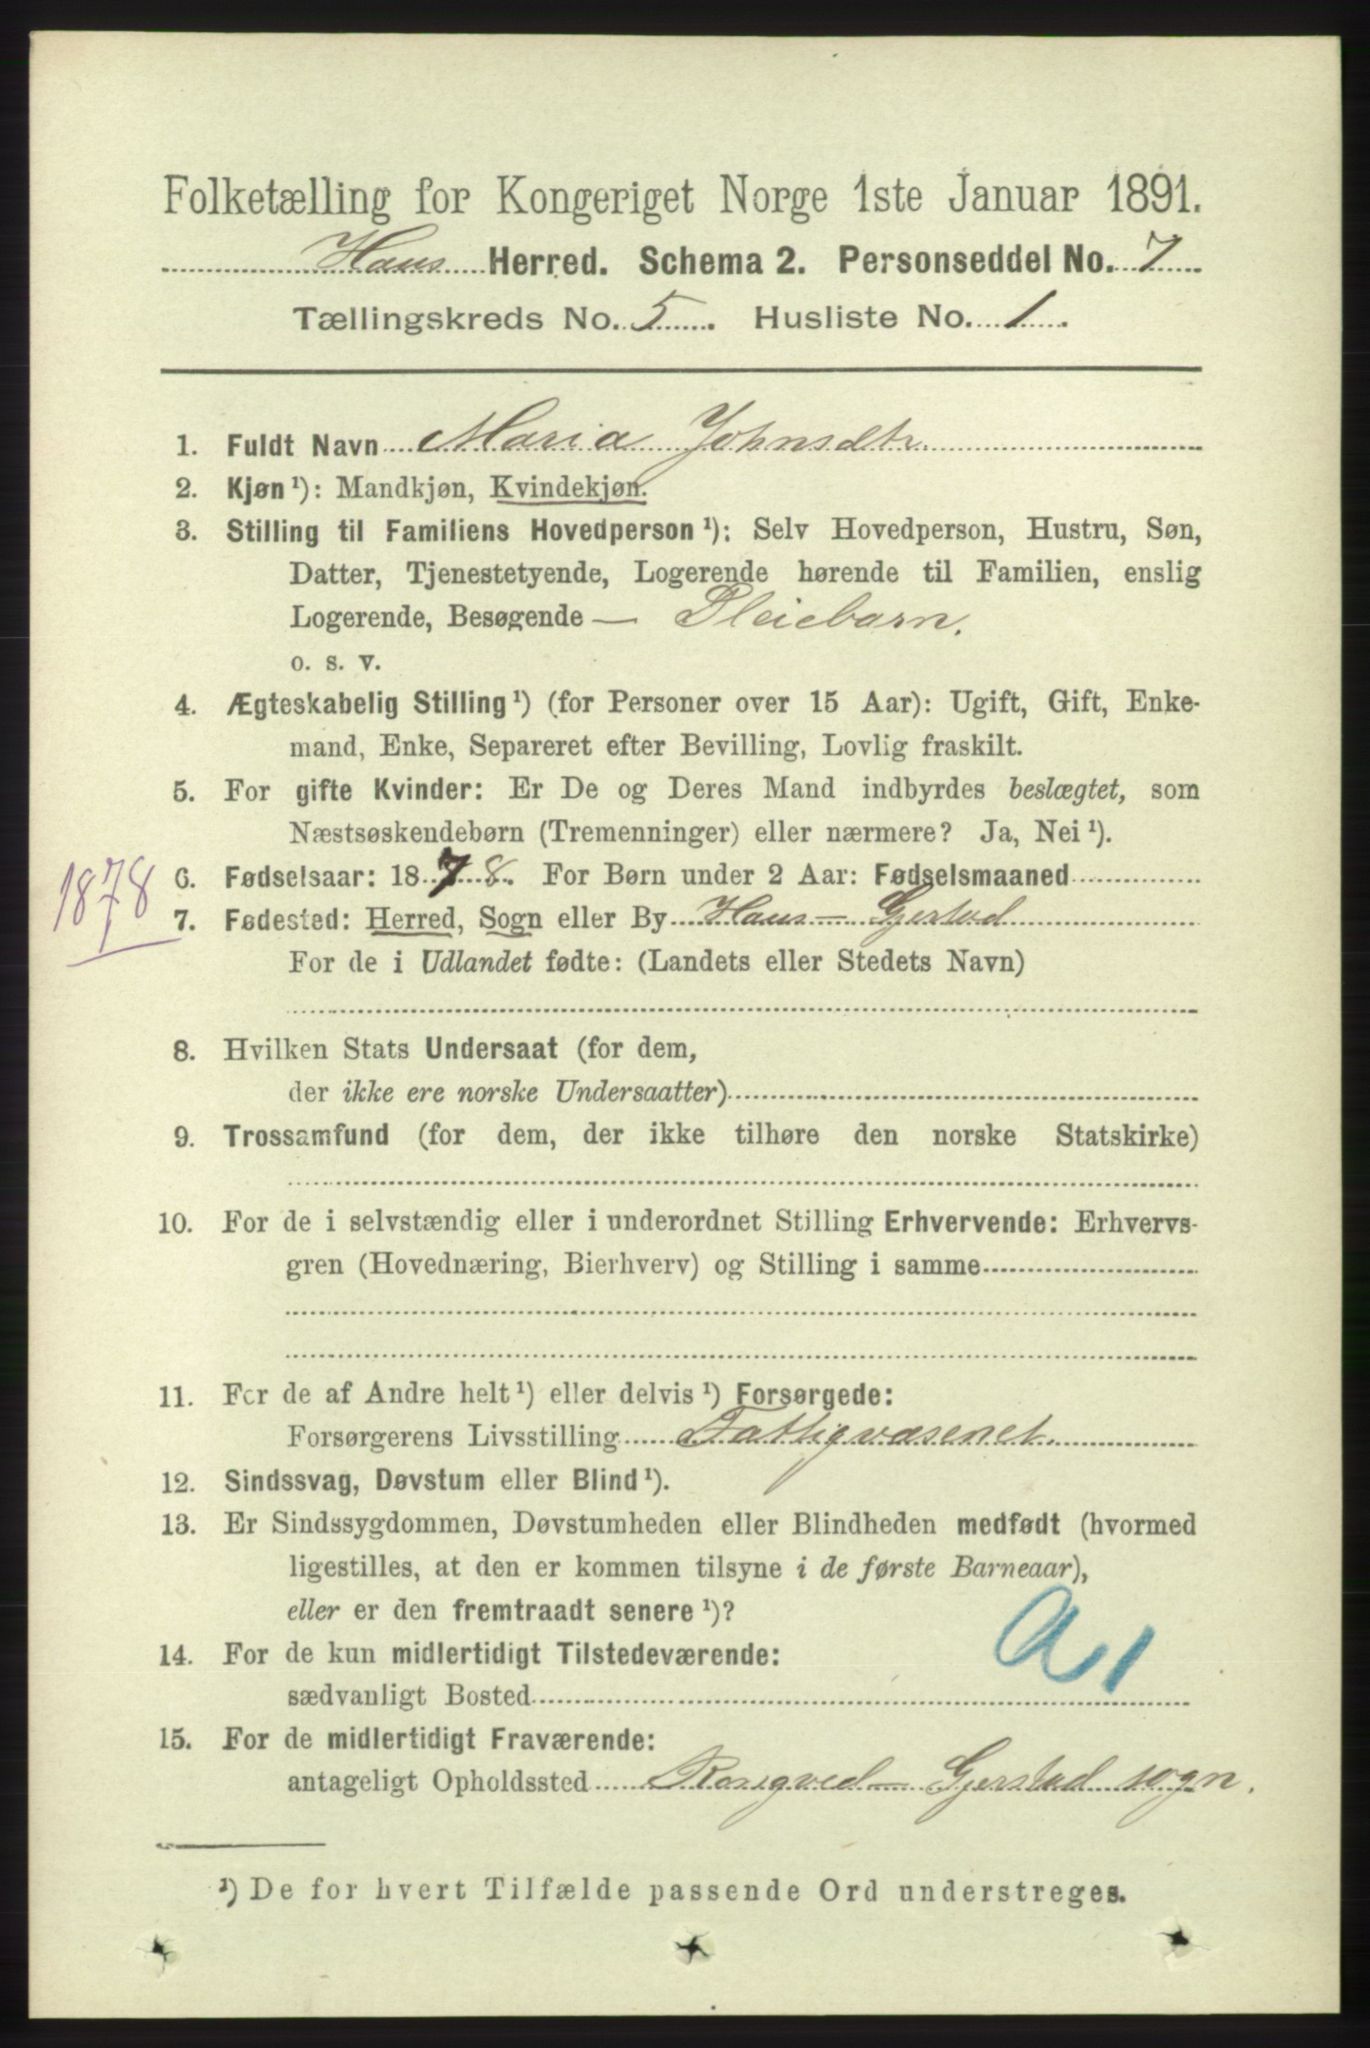 Folketælling for Kongeriget Norge 1ste Januar 1891.
Haus Herred. Schema 2. Personseddel No. 7
Tællingskreds No. 5. Husliste No. 1.
1. Fuldt Navn Maria Johnsdtr.
2. Kjøn¹): Mandkjøn, Kvindekjøn.
3. Stilling til Familiens Hovedperson¹): Selv Hovedperson, Hustru, Søn,
Datter, Tjenestetyende, Logerende hørende til Familien, enslig
Logerende, Besøgende — Pleiebarn.
o. s. v.
4. Ægteskabelig Stilling¹) (for Personer over 15 Aar): Ugift, Gift, Enke-
mand, Enke, Separeret efter Bevilling, Lovlig fraskilt.
5. For gifte Kvinder: Er De og Deres Mand indbyrdes beslægtet, som
Næstsøskendebørn (Tremenninger) eller nærmere? Ja, Nei¹).
1878
6. Fødselsaar: 1878. For Børn under 2 Aar: Fødselsmaaned
7. Fødested: Herred, Sogn eller By Haus – Gjerstad
For de i Udlandet fødte: (Landets eller Stedets Navn)
8. Hvilken Stats Undersaat (for dem,
der ikke ere norske Undersaatter)
9. Trossamfund (for dem, der ikke tilhøre den norske Statskirke)
10. For de i selvstændig eller i underordnet Stilling Erhvervende: Erhvervs-
gren (Hovednæring, Bierhverv) og Stilling i samme
11. For de af Andre helt¹) eller delvis¹) Forsørgede:
Forsørgerens Livsstilling Fattigvæsenet.
12. Sindssvag, Døvstum eller Blind¹).
13. Er Sindssygdommen, Døvstumheden eller Blindheden medfødt (hvormed
ligestilles, at den er kommen tilsyne i de første Barneaar),
eller er den fremtraadt senere¹)?
14. For de kun midlertidigt Tilstedeværende:
a1
sædvanligt Bosted
15. For de midlertidigt Fraværende:
antageligt Opholdssted Rongved – Gjerstad sogn.
¹) De for hvert Tilfælde passende Ord understreges.